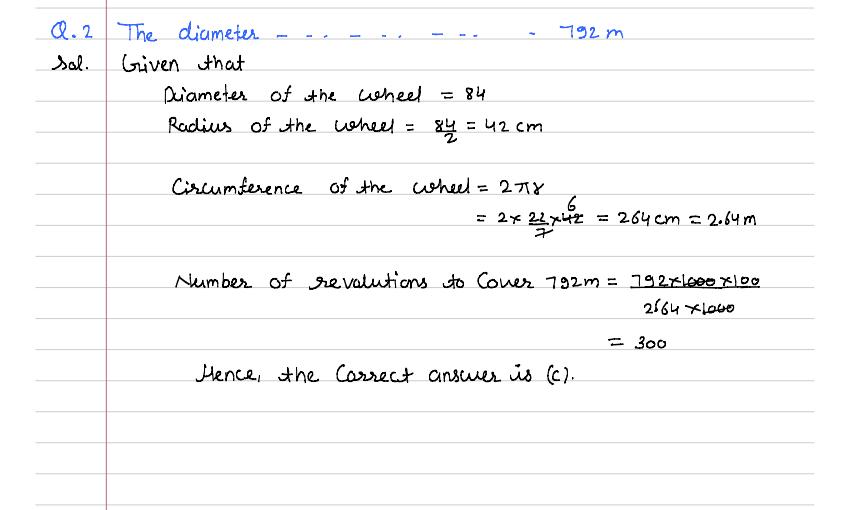 Q.2 The diameter - -.. - -.. - -.. - 792 m
Sol. Given that
Diameter of the wheel = 84
Radius of the wheel = 84/2 = 42 cm
Circumference of the wheel = 2πr
= 2 × 22/7 × 42 6 = 264 cm = 2.64 m
Number of revolutions to Cover 792m = 792×1000×100
264 ×1000
= 300
Hence, the Correct answer is (c).